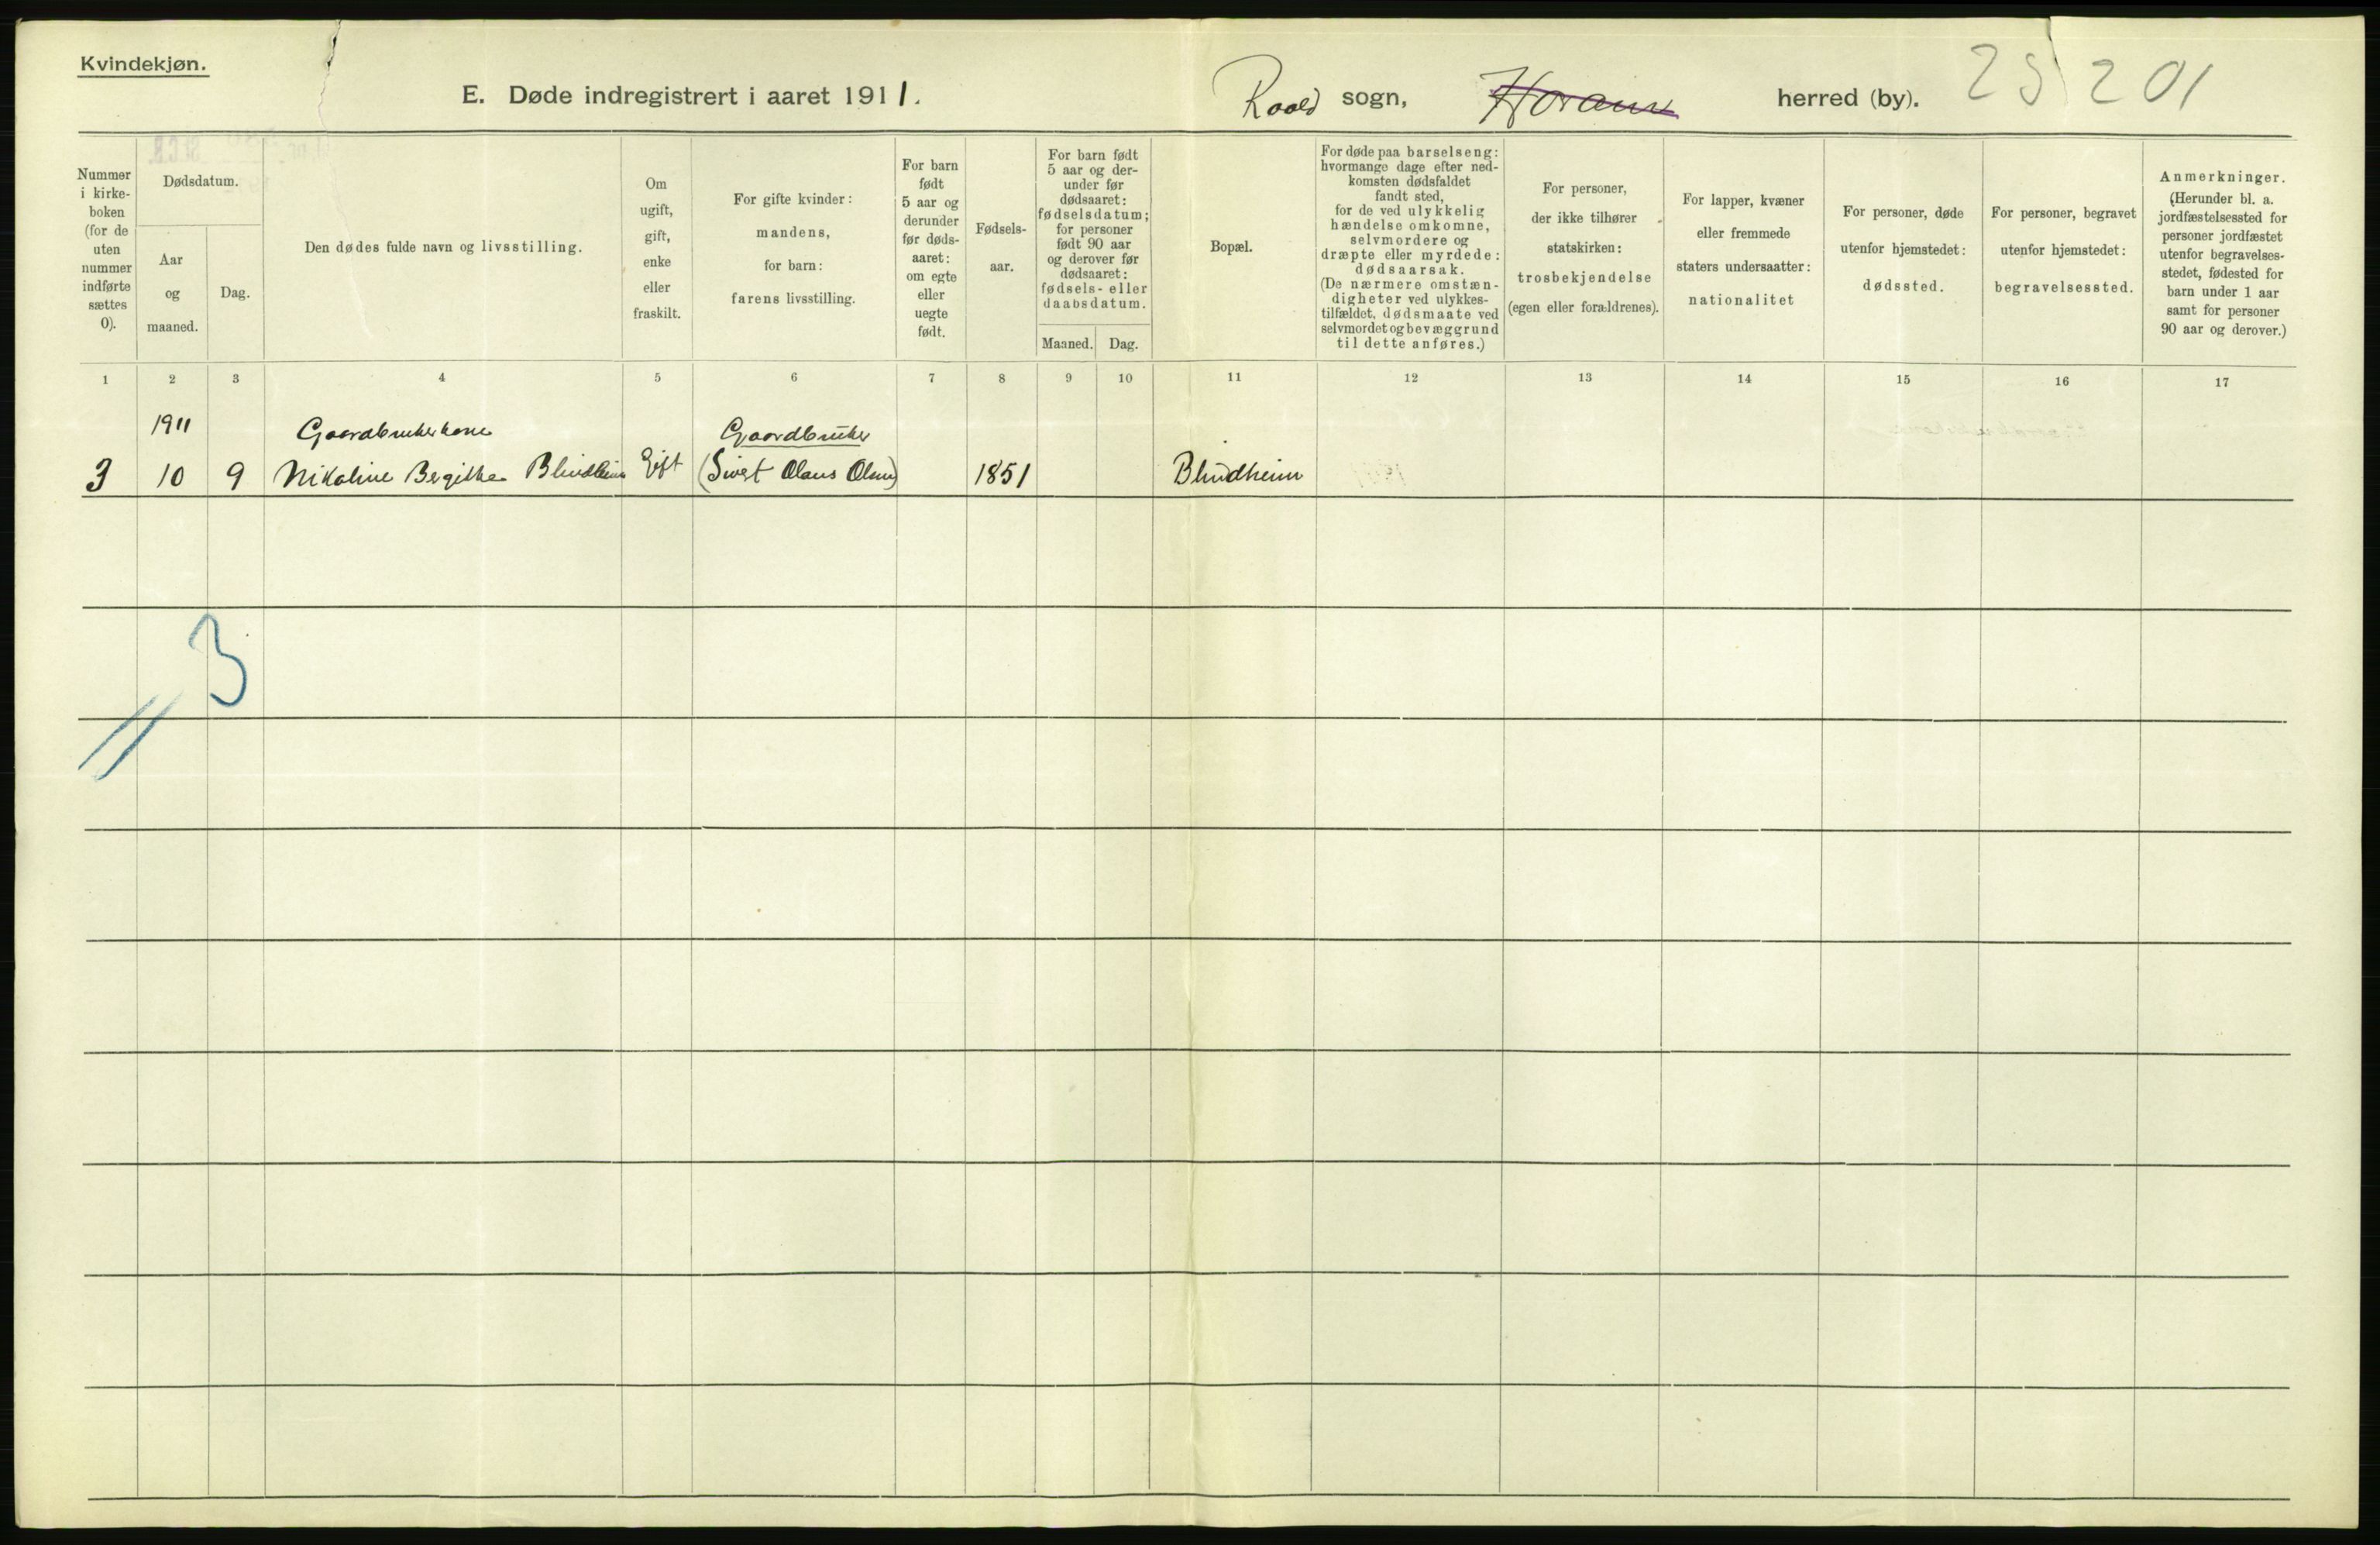 Kvindekjøn.
E. Døde indregistrert i aaret 1911.
Roald sogn, herred (by). 25 201
Nummer i kirke-
boken
(for de
uten
nummer
indførte
sættes
0).
Dødsdatum.
Aar
og
maaned.
Dag.
Den dødes fulde navn og livsstilling.
Om
ugift,
gift,
enke
eller
fraskilt.
For gifte kvinder:
mandens,
for barn:
farens livsstilling.
For barn
født
5 aar og
derunder
før døds-
aaret:
om egte
eller
uegte
født.
Fødsels-
aar.
For barn født
5 aar og der-
under før
dødsaaret:
fødselsdatum;
for personer
født 90 aar
og derover før
dødsaaret:
fødsels- eller
daabsdatum.
Maaned. Dag.
Bopæl.
For døde paa barselseng:
hvormange dage efter ned-
komsten dødsfaldet
fandt sted,
for de ved ulykkelig
hændelse omkomne,
selvmordere og
dræpte eller myrdede:
dødsaarsak.
(De nærmere omstæn-
digheter ved ulykkes-
tilfældet, dødsmaate ved
selvmordet og bevæggrund
til dette anføres.)
For personer,
der ikke tilhører
statskirken:
trosbekjendelse
(egen eller forældrenes).
For lapper, kvæner
eller fremmede
staters undersaatter:
nationalitet
For personer, døde
utenfor hjemstedet:
dødssted.
For personer, begravet
utenfor hjemstedet:
begravelsessted.
Anmerkninger.
(Herunder bl. a.
jordfæstelsessted for
personer jordfæstet
utenfor begravelses-
stedet, fødested for
barn under 1 aar
samt for personer
90 aar og derover.)
1 2 3 4 5 6 7 8 9 10 11 12 13 14 15 16 17
1911 Gaardbrukerkone Gaardbruker
3 10 9 Nikoline Bergithe Blindheim Gift (Sivert Olaus Olsen) 1851 Blindheim
3